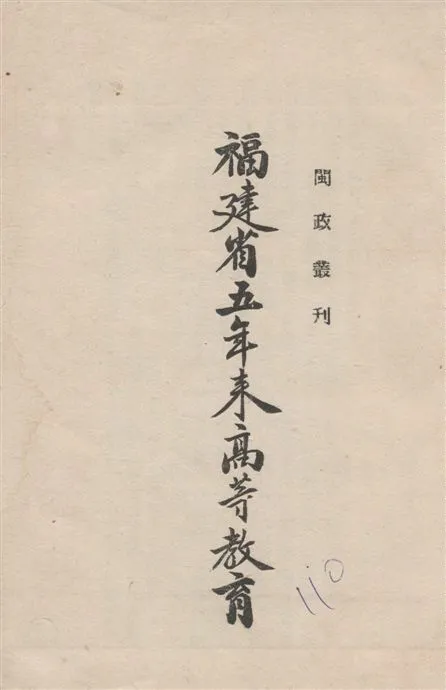 閩政叢刊
福建省五年来高等教育
110